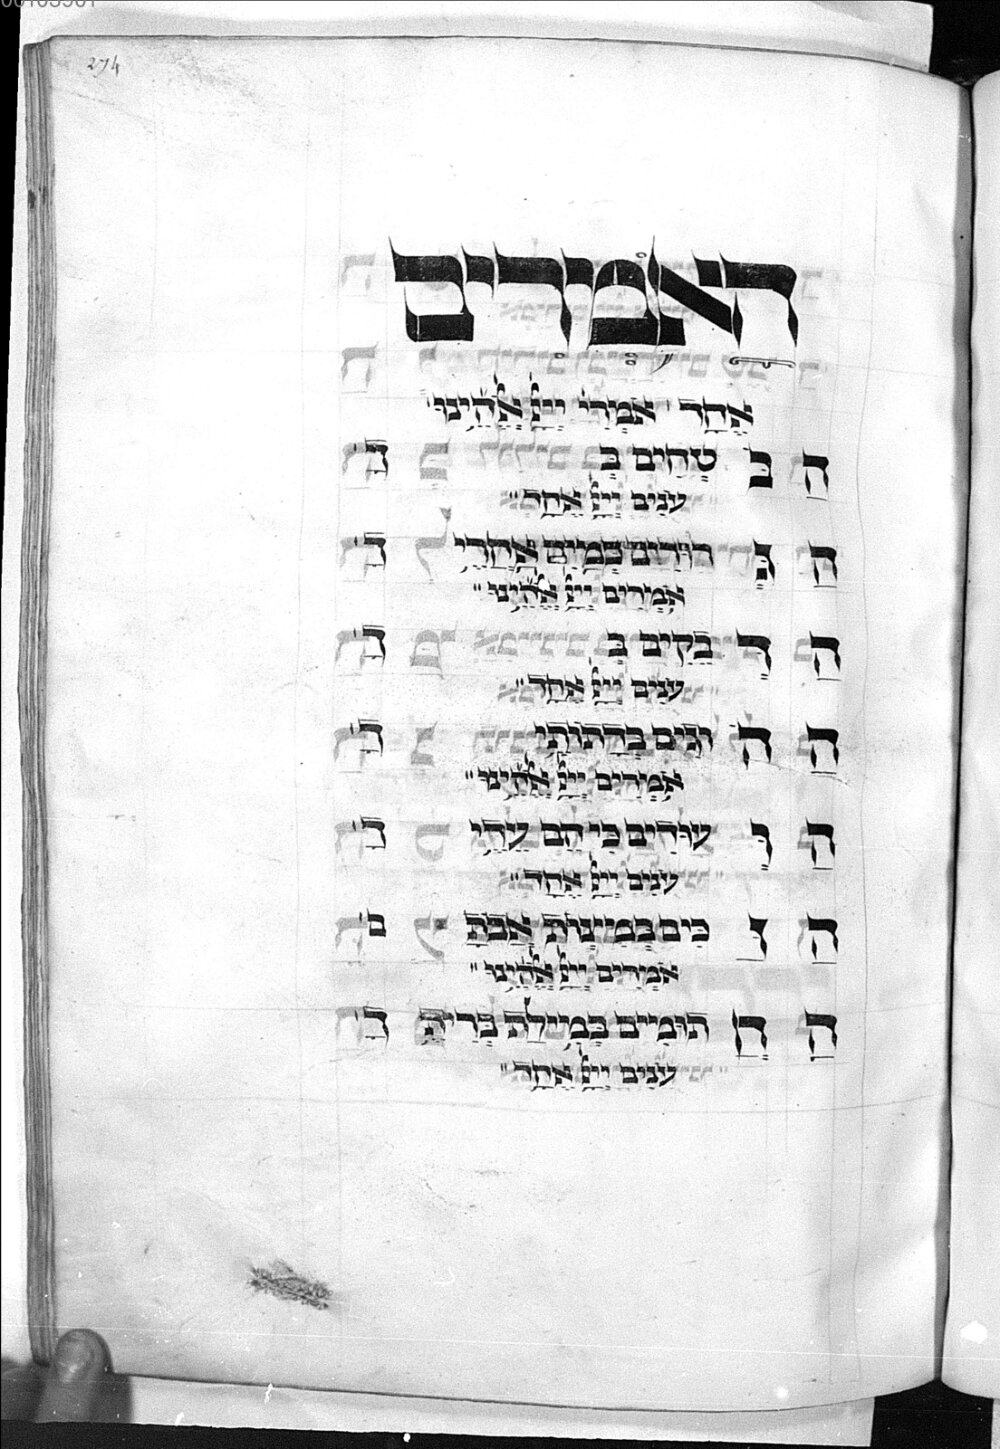 274
האמרים
אחד אמרי' ייי אלהינו
ה ב טחים ב ד'
ענים ייי אחד
ה ג הורים כמים אחרי ד'
אמרים ייי אלהינו
ה ד בקים ב ד'
ענים ייי אחד
ה ה וגים בדתותי ד'
אמרים ייי אלהינו
ה ו עודים כי הם עדי ד'
ענים ייי אחד
ה ז כים אבת ם'
אמרים ייי אלהינו
ה ח תומים במילת ברית ד'
ענים ייי אחד